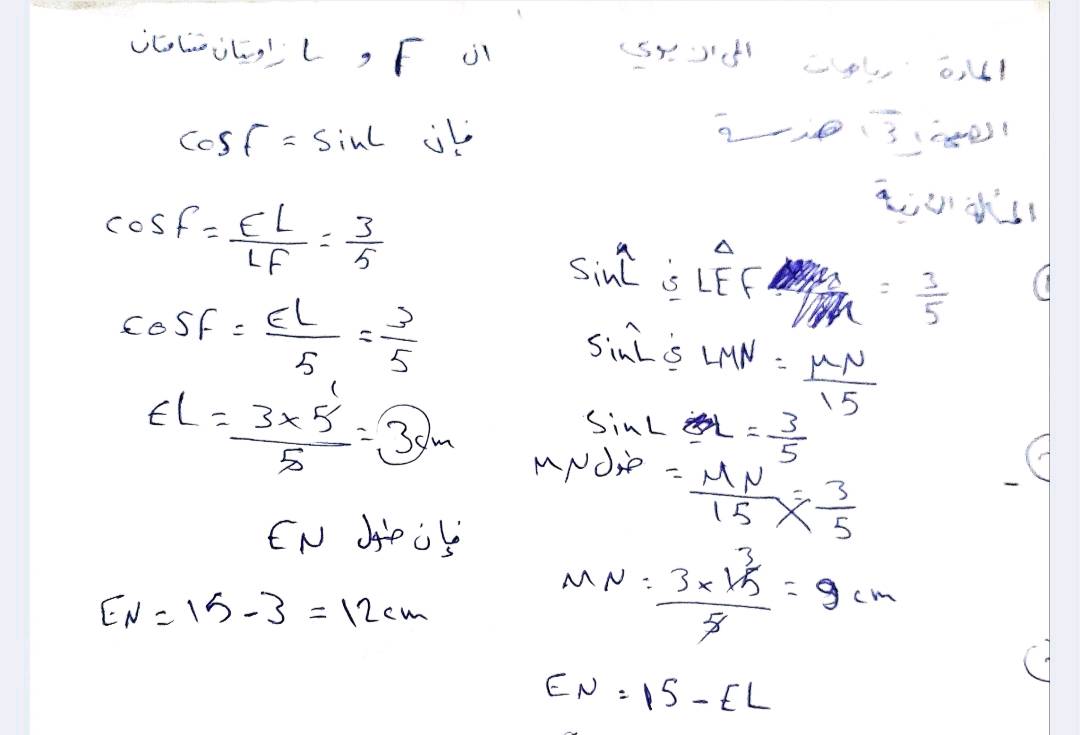 المادة رياضيات
الصفحة (3) هندسة
المسألة الثانية
Sin L̂ في LEF = 3/5
Sin L̂ في LMN = MN/15
Sin L = 3/5
طول MN = MN/15 = 3/5
MN = 3×15/5 = 9cm
EN = 15 - EL
ان F و L زاويتان متتامتان
فإن cosF = SinL
cosF = EL/LF = 3/5
cosF = EL/5 = 3/5
EL = 3×5/5 = 3cm
فإن طول EN
EN = 15-3 = 12cm